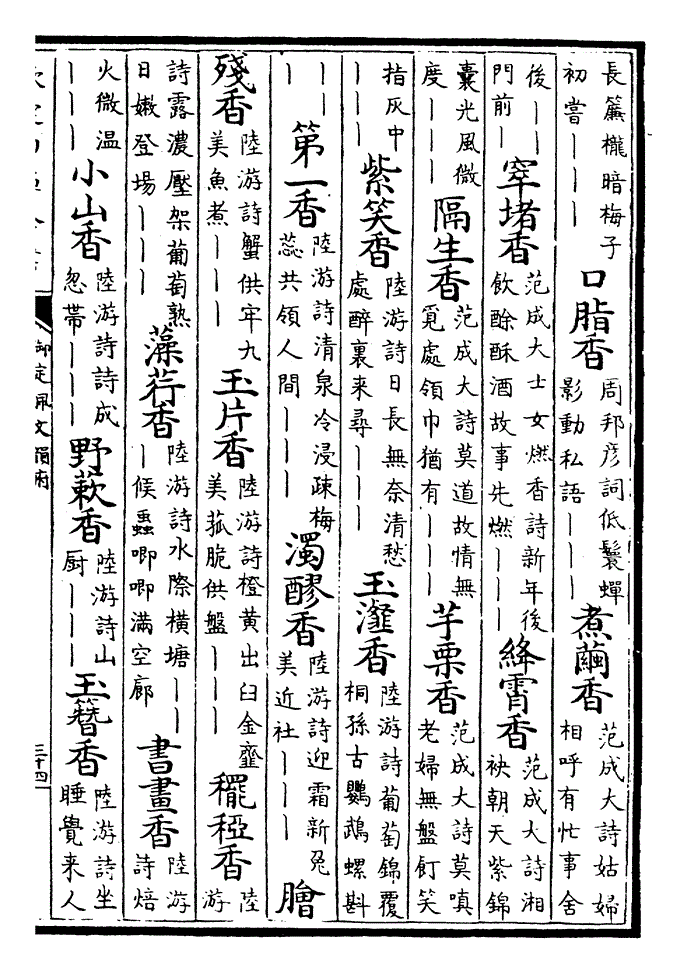 長簾櫳暗梅子初嘗丨丨丨 口脂香 周邦彥詞低鬟蟬影動私語丨丨丨 煮繭香 范成大詩姑婦相呼有忙事舍
後丨丨門前丨 窣堵香 范成大士女燃香詩新年後飲酴酥酒故事先燃丨丨丨 絳霄香 范成大詩湘袂朝天紫錦
囊光風微度丨丨丨 隔生香 范成大詩莫道故情無覓處領巾猶有丨丨丨 芋栗香 范成大詩莫嗔老婦無盤飣笑
指灰中丨丨丨 紫笑香 陸游詩日長無奈清愁處醉裏来尋丨丨丨 玉瀣香 陸游詩葡萄錦覆桐孫古鸚鵡螺斟
丨丨丨 第一香 陸游詩清泉冷浸疎梅蕊共領人間丨丨丨 濁醪香 陸游詩迎霜新兔美近社丨丨丨 膾
殘香 陸游詩蟹供牢九美魚煮丨丨丨 玉片香 陸游詩橙黃出臼金虀美菰脆供盤丨丨丨 䆉稏香 陸游
詩露濃壓架葡萄熟日嫩登場丨丨丨 藻荇香 陸游詩水際橫塘丨丨丨候蟲唧唧滿空廊 書畫香 陸游詩焙
火微温丨丨丨 小山香 陸游詩詩成忽帶丨丨丨 野蔌香 陸游詩山厨丨丨丨 玉簪香 陸游詩坐睡覺来人
御定佩文韻府
三十四